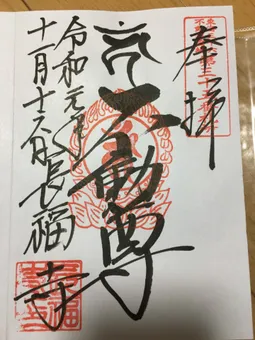 奉拝
不動尊
令和元年
十一月十六日
長福寺